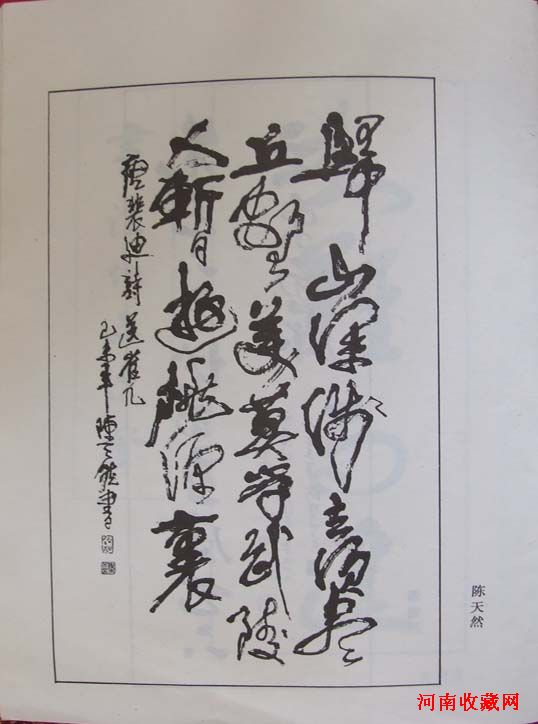 歸山深淺去須盡
丘壑美莫學武陵
人暫遊桃源裏
唐裴迪詩送崔九
己未年陳天然書
陈天然
河南收藏网